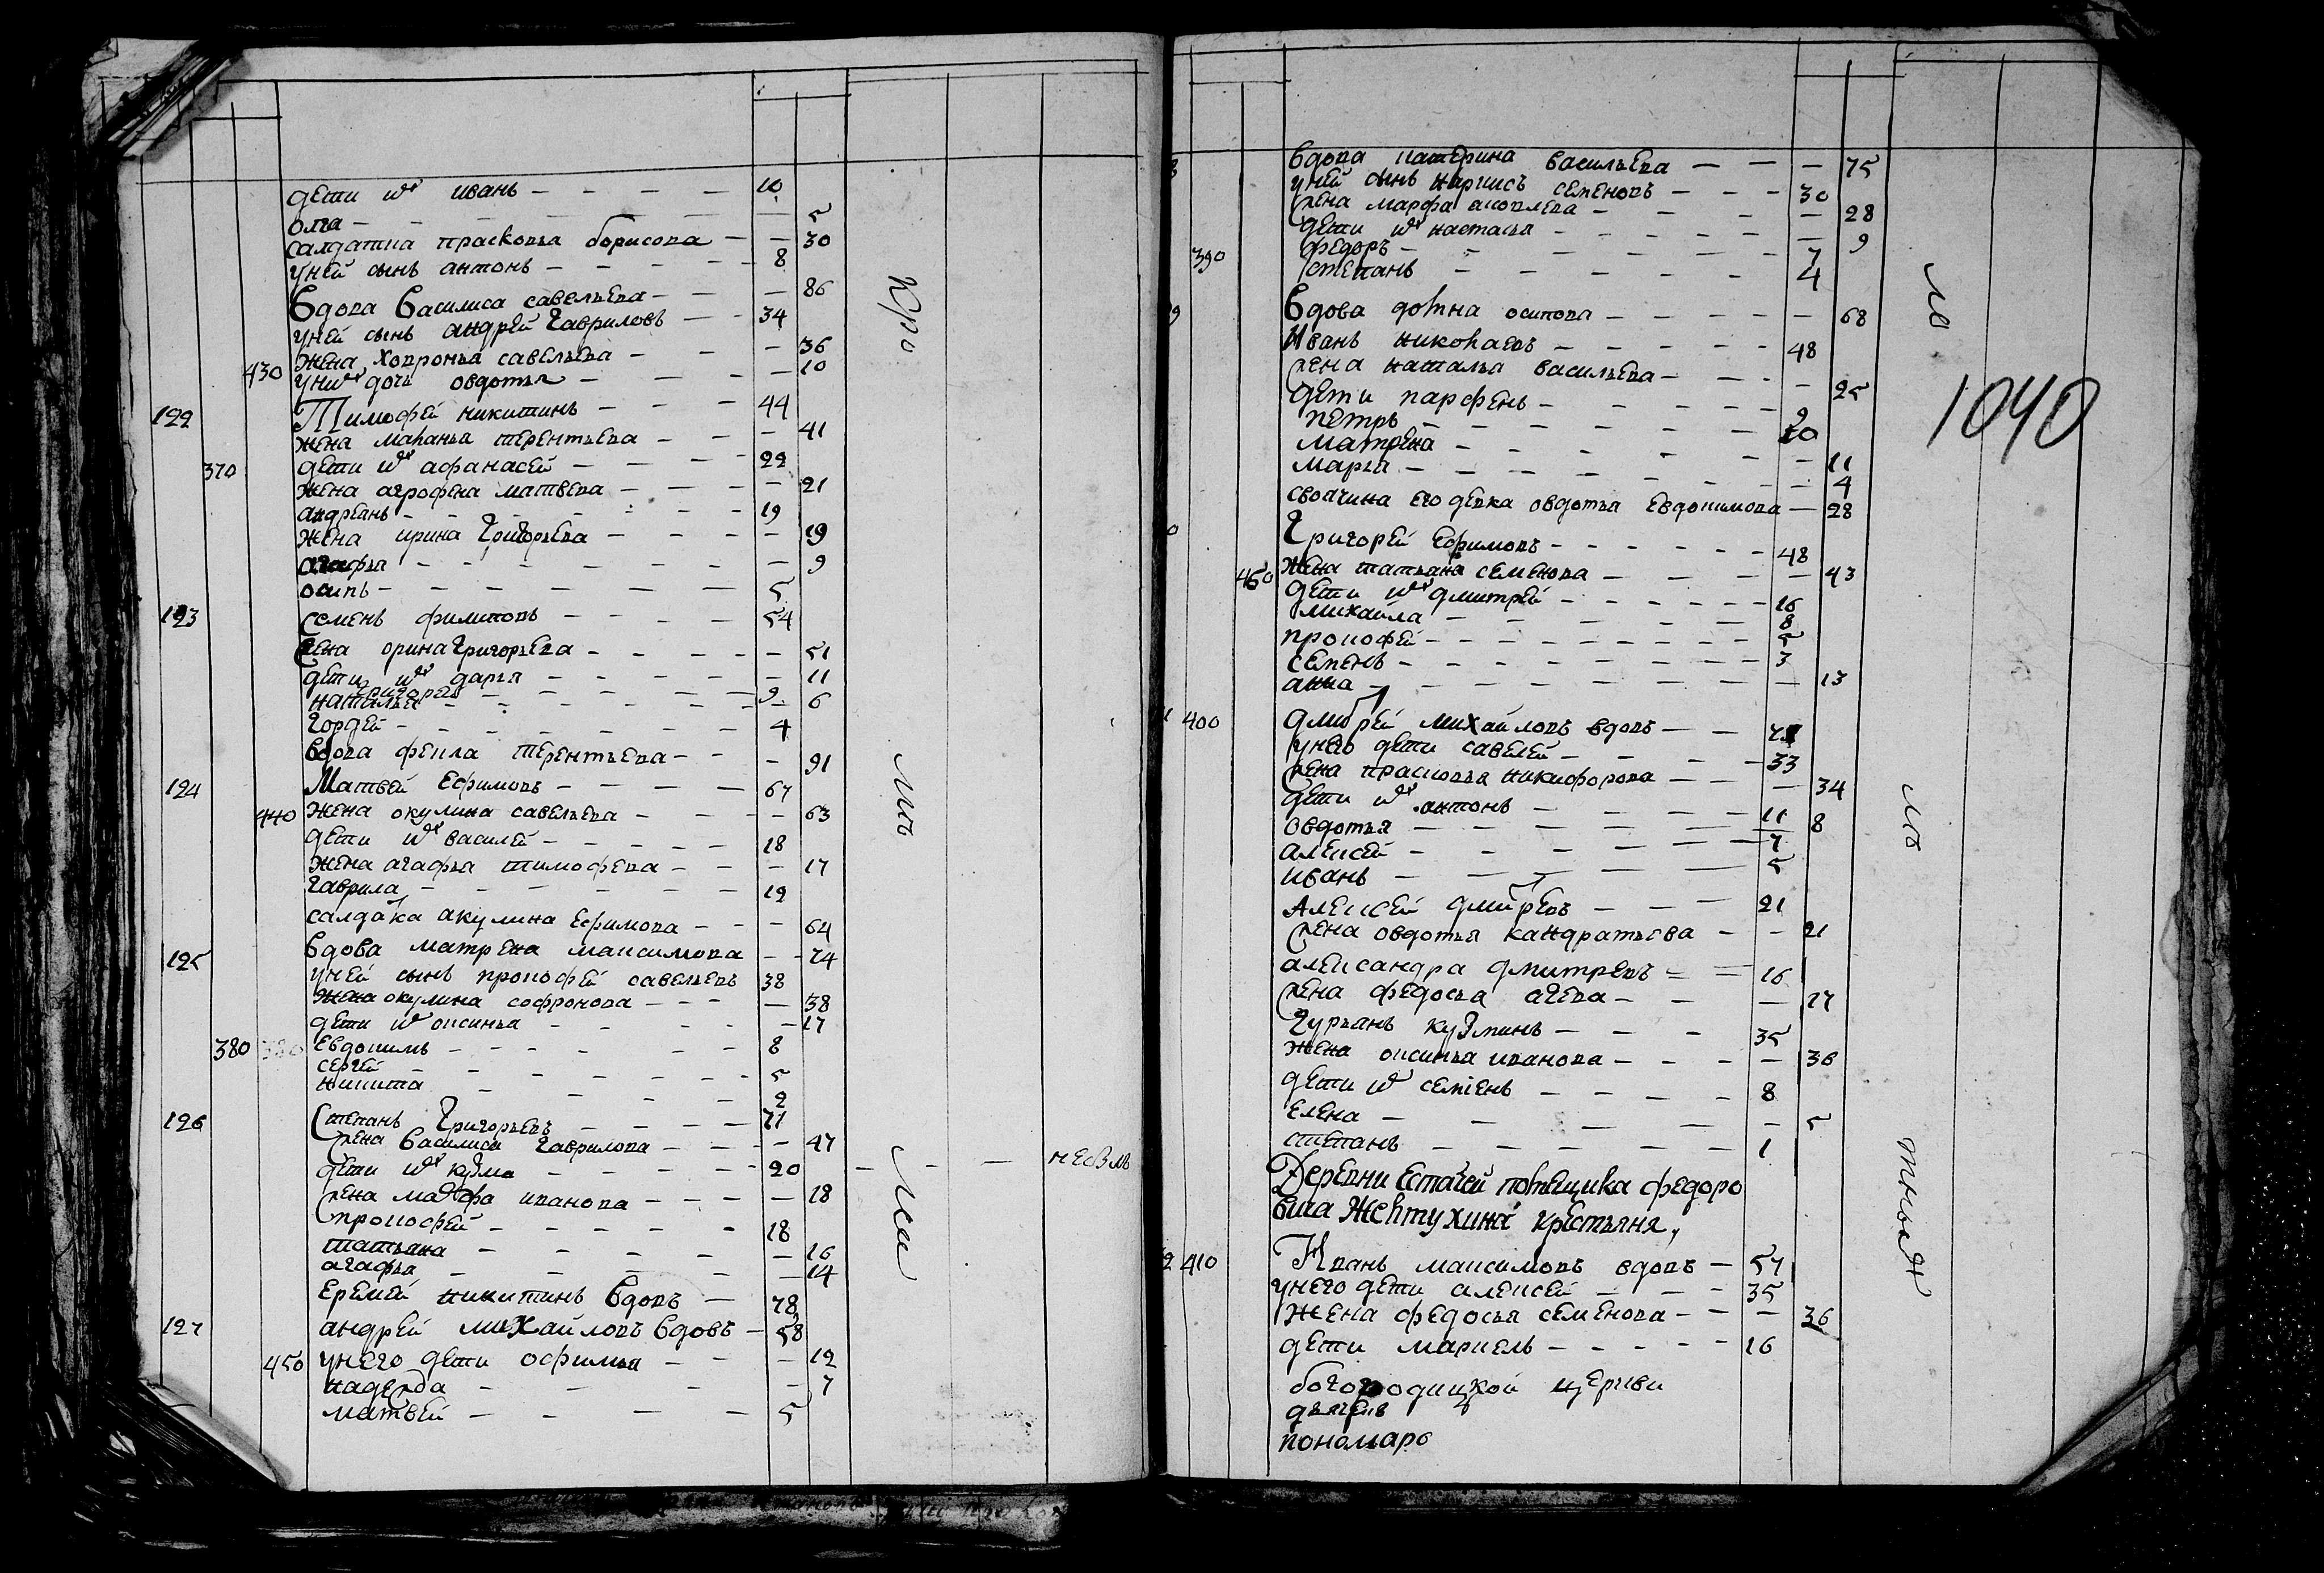 дети их иванъ — — — — 10
олга — — 5
салдатка прасковья борисова — — 30
у ней сынъ антонъ — — — — 8
Вдова Василиса савельева — — 86
у ней сынъ андрей Гавриловъ — — 34
жена хавронья савельева — — 36
430 у них дочь овдотья — — — 10
122 Тимофей никитинъ — — — 44
жена маланья терентьева — — — 41
370 дети их афанасей — — — 22
жена агрофена матвева — — — 21
андреянъ — — — — — 19
жена ирина Григорьева — — — — 19
агафья — — — — — — — 9
осипъ — — — — — — — 5
123 Семенъ филиповъ — — — — 54
жена орина Григорьева — — — — — 51
дети их дарья — — — — — 11
григорей — — — — 9
наталья — — — — — — 6
Гордей — — — — — — — 4
вдова фекла терентьева — — — 91
124 Матвей Ефимовъ — — — — 67
440 жена окулина савельева — — — — 63
дети их василей — — — — — 18
жена агафья тимофева — — — 17
гаврила — — — — — — 12
салдатка акулина Ефимова — — — 64
125 Вдова матрена максимова — — 74
у ней сынъ прокофей савельевъ 38
жена окулина софронова — — — — 38
дети их оксинья — — — — — 17
380 380 Евдокимъ — — — — — — 8
сергей — — — — — — — 5
никита — — — — 2
126 Степанъ Григорьевъ — — — — 71
жена Василиса Гаврилова — — — — 47
дети их кузма — — — — 20 — — —
жена марфа иванова — — — — 18
прокофей — — — — — 18
татьяна — — — — — 16
агафья — — — — — 14
Еремей никитинъ вдовъ — 78
127 андрей михайловъ вдовъ — 58
450 у него дети офимья — — — 12
надежда — — — — 7
матвей — — — — 5
Кре
ми
8 Вдова катерина васильева — — — 75
у ней сынъ наркисъ семеновъ — — — 30
жена марфа яковлева — — — — 28
дети их настасья — — — — — 9
390 федоръ — — — — — — 7
степанъ — — — — — — 4
9 Вдова домна осипова — — — — — 68
Иванъ николаевъ — — — — — 48
жена наталья васильева — — — — 25
дети парфенъ — — — — — 9
петръ — — — — — — 20
матрена — — — — — — — 11
марья — — — — — — — 4
своячина его девка овдотья Евдокимова — 28
0 Григорей Ефимовъ — — — — — — 48
460 жена татьяна семенова — — — — — 43
дети их дмитрей — — — — — — 16
михайла — — — — — — 8
прокофей — — — — — — — — 5
семенъ — — — — — — — — 3
анна — — — — — — — 13
1 400 Дмитрей михайловъ вдовъ — — 71
у него дети савелей — — — — 33
жена прасковья никифорова — — — 34
дети их антонъ — — — — 11
овдотья — — — — — — 8
алексей — — — — — — 7
иванъ — — — — — 5
Алексей дмитревъ — — — 21
жена овдотья кандратьева — — 21
александра дмитревъ — — 16
жена федосья агева — — — 17
Гурьянъ кузминъ — — — 35
жена оксинья иванова — — — — 36
дети их семенъ — — — — 8
Елена — — — — — 5
степанъ — — — — — — 1
помещика федоро
Желтухина крестьяня,
2 410 Иванъ максимовъ вдовъ — 57
у него дети алексей — — — 35
жена федосья семенова — — — 36
дети маркелъ — — — — 16
богородицкой церкви
дьячекъ
пономарь
1040